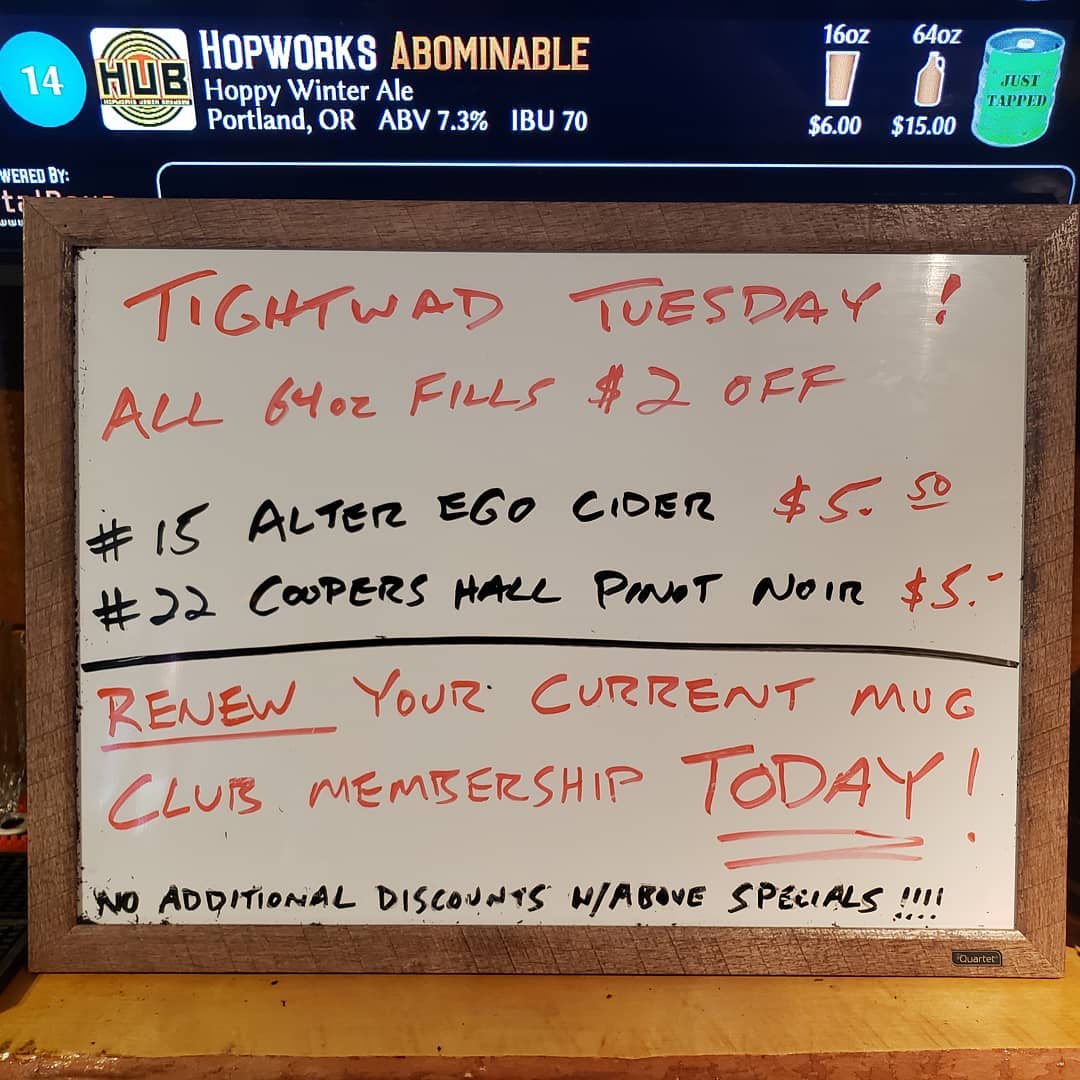 14
HUB
HOPWORKS URBAN BREWERY
HOPWORKS ABOMINABLE
Hoppy Winter Ale
Portland, OR ABV 7.3% IBU 70
16oz 64oz
$6.00 $15.00
JUST
TAPPED
WERED BY:
TIGHTWAD TUESDAY!
ALL 64oz FILLS $2 OFF
#15 ALTER EGO CIDER $5.50
#22 COOPERS HALL PINOT NOIR $5.-
RENEW YOUR CURRENT MUG
CLUB MEMBERSHIP TODAY!
NO ADDITIONAL DISCOUNTS W/ABOVE SPECIALS !!!!
Quartet